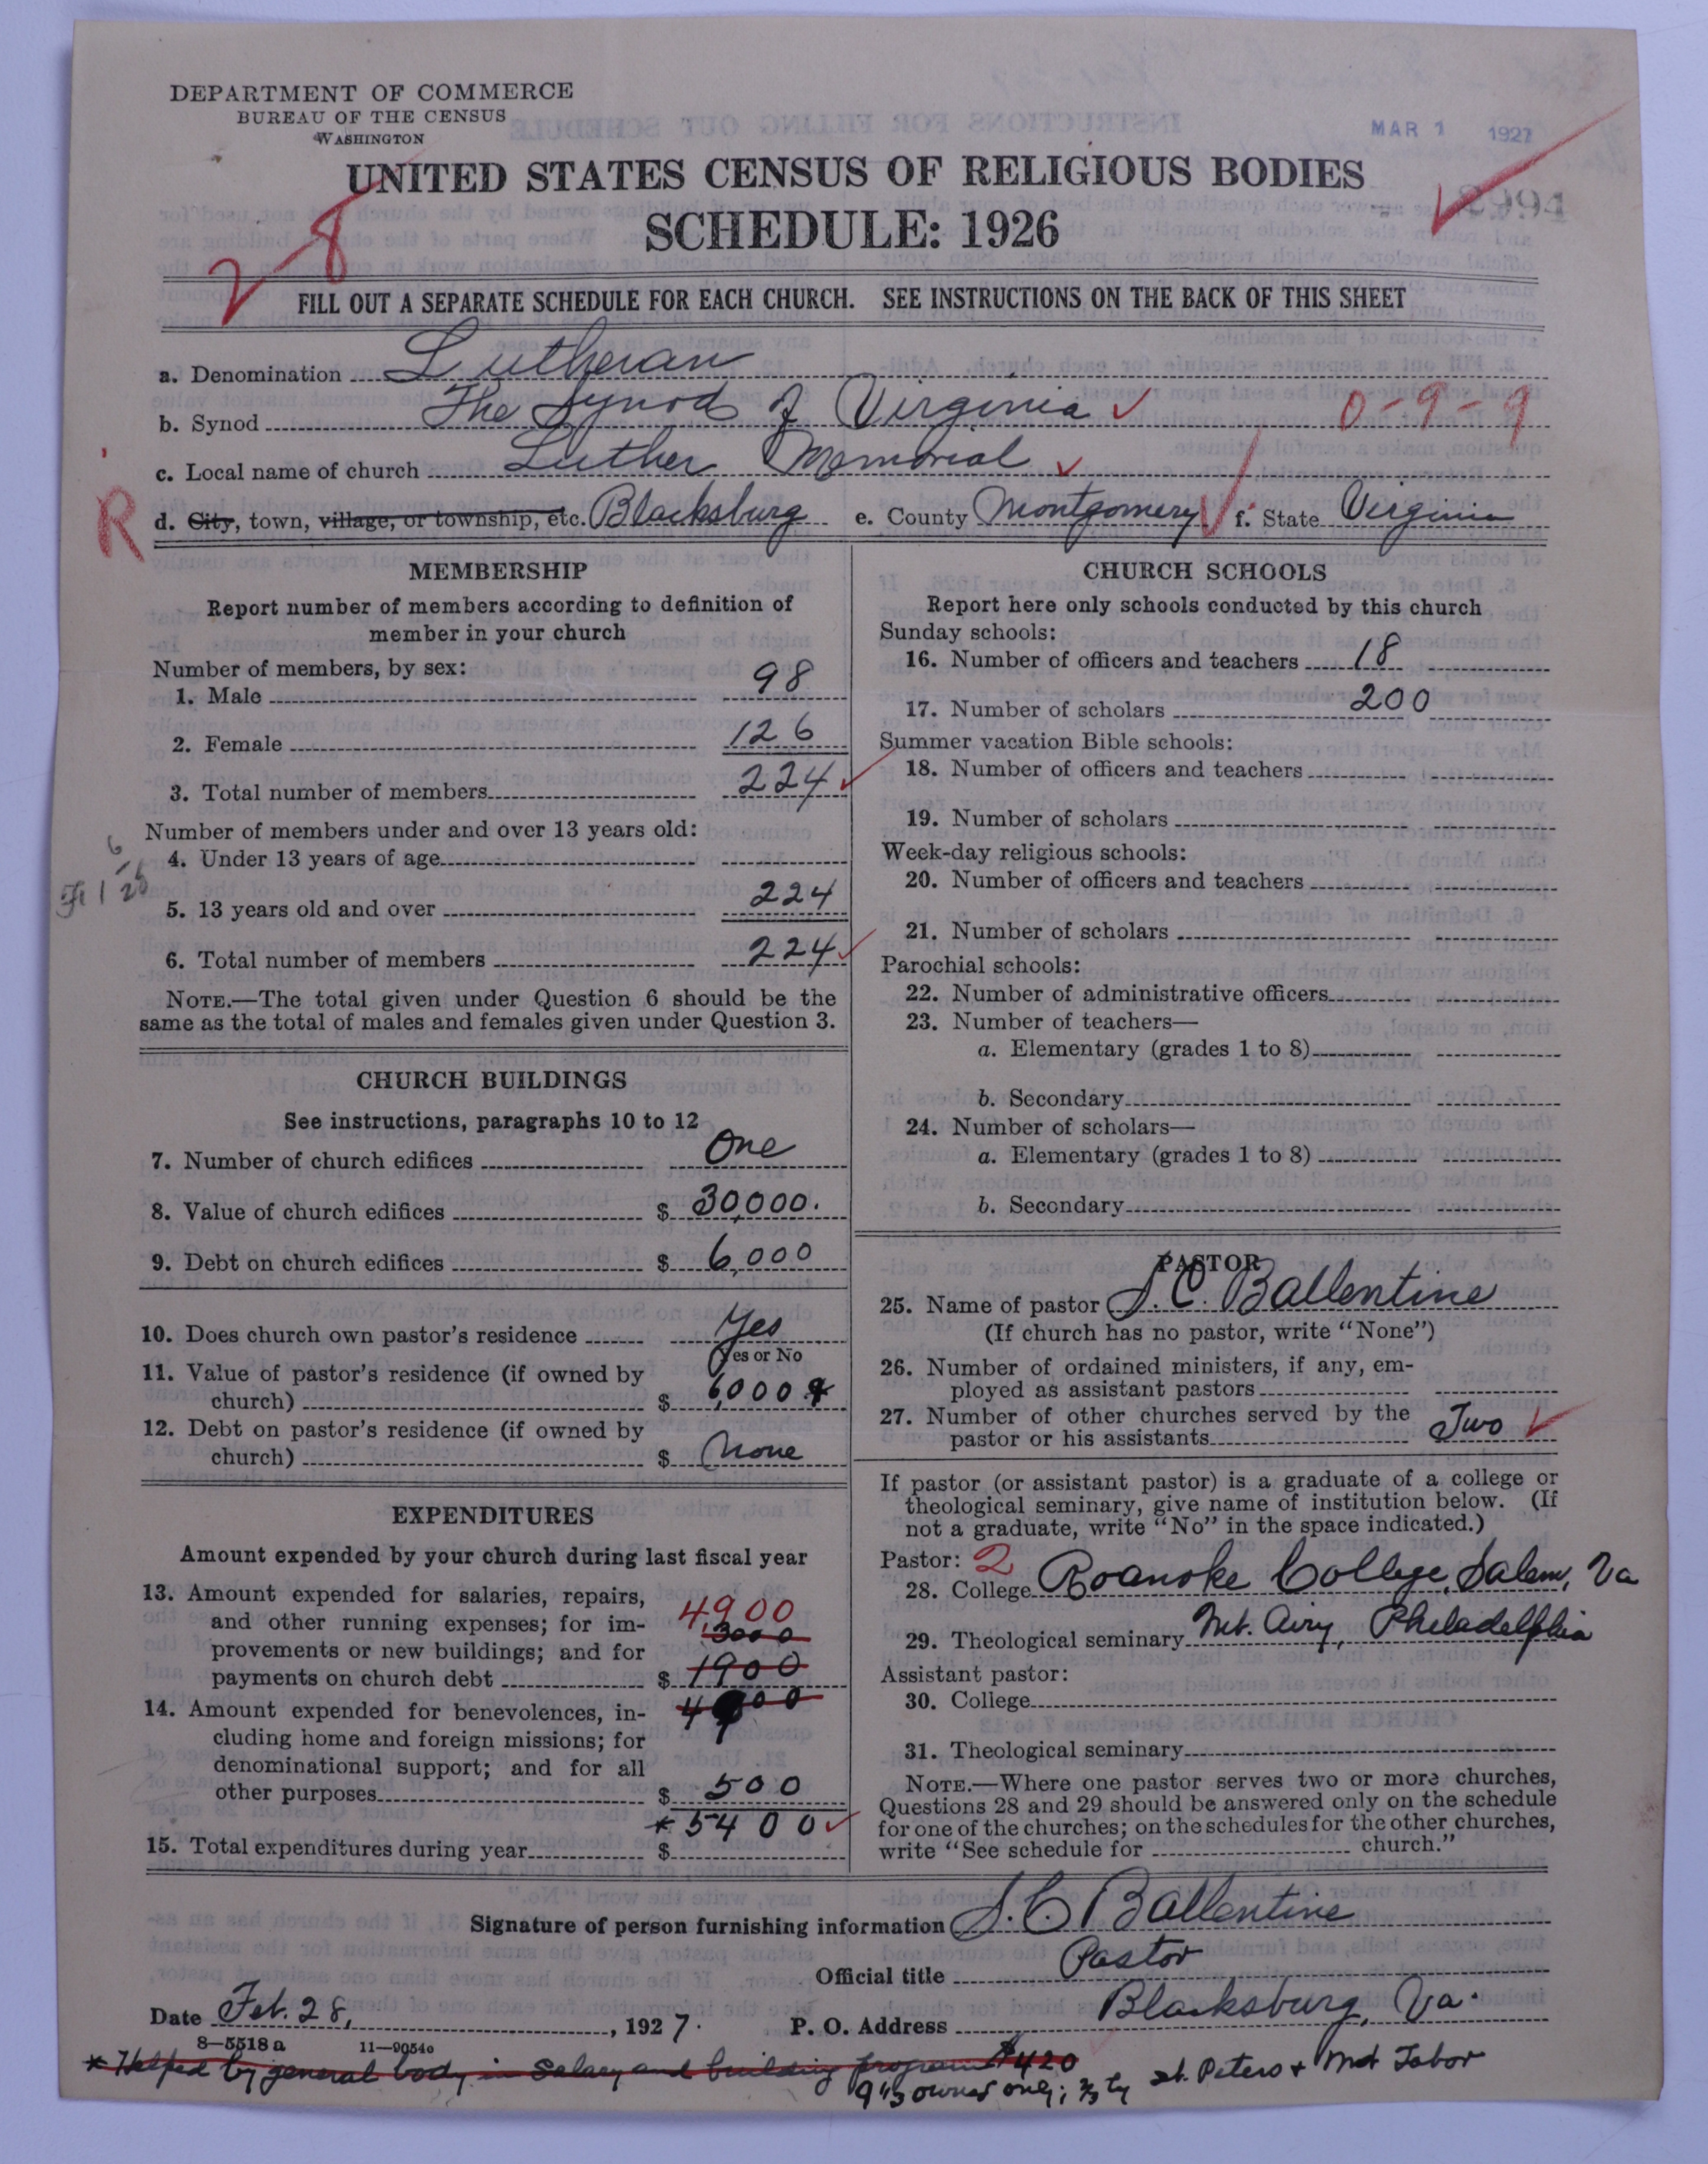 DEPARTMENT OF COMMERCE
BUREAU OF THE CENSUS
WASHINGTON
MAR 1 1927
UNITED STATES CENSUS OF RELIGIOUS BODIES
SCHEDULE: 1926
2-8
FILL OUT A SEPARATE SCHEDULE FOR EACH CHURCH. SEE INSTRUCTIONS ON THE BACK OF THIS SHEET
a. Denomination Lutheran
b. Synod The Synod of Virginia 0-9-9
c. Local name of church Luther Memorial
R
d. City, town, village, or township, etc. Blacksburg e. County Montgomery f. State Virginia
MEMBERSHIP
Report number of members according to definition of
member in your church
Number of members, by sex:
1. Male 98
2. Female 126
3. Total number of members 224
Number of members under and over 13 years old:
4. Under 13 years of age
5. 13 years old and over 224
6. Total number of members 224
NOTE.—The total given under Question 6 should be the
same as the total of males and females given under Question 3.
CHURCH BUILDINGS
See instructions, paragraphs 10 to 12
7. Number of church edifices One
8. Value of church edifices $ 30,000.
9. Debt on church edifices $ 6,000
10. Does church own pastor's residence Yes
Yes or No
11. Value of pastor's residence (if owned by
church) $ 6,000
12. Debt on pastor's residence (if owned by
church) $ None
EXPENDITURES
Amount expended by your church during last fiscal year
13. Amount expended for salaries, repairs,
and other running expenses; for im- 4900
provements or new buildings; and for 3000
payments on church debt $ 1900
14. Amount expended for benevolences, in- 4900
cluding home and foreign missions; for
denominational support; and for all
other purposes $ 500
* 5400
15. Total expenditures during year $
CHURCH SCHOOLS
Report here only schools conducted by this church
Sunday schools:
16. Number of officers and teachers 18
17. Number of scholars 200
Summer vacation Bible schools:
18. Number of officers and teachers
19. Number of scholars
Week-day religious schools:
20. Number of officers and teachers
21. Number of scholars
Parochial schools:
22. Number of administrative officers
23. Number of teachers—
a. Elementary (grades 1 to 8)
b. Secondary
24. Number of scholars—
a. Elementary (grades 1 to 8)
b. Secondary
PASTOR
25. Name of pastor S. C. Ballentine
(If church has no pastor, write "None")
26. Number of ordained ministers, if any, em-
ployed as assistant pastors
27. Number of other churches served by the
pastor or his assistants Two
If pastor (or assistant pastor) is a graduate of a college or
theological seminary, give name of institution below. (If
not a graduate, write "No" in the space indicated.)
Pastor: 2
28. College Roanoke College, Salem, Va
29. Theological seminary Mt. Airy, Philadelphia
Assistant pastor:
30. College
31. Theological seminary
NOTE.—Where one pastor serves two or more churches,
Questions 28 and 29 should be answered only on the schedule
for one of the churches; on the schedules for the other churches,
write "See schedule for church."
Signature of person furnishing information S. C. Ballentine
Official title Pastor
Date Feb. 28, 1927. P. O. Address Blacksburg, Va.
8-5518 a 11-9054o
* Helped by general body in salary and building program $420
owned only; by St. Peters + Mt Tabor